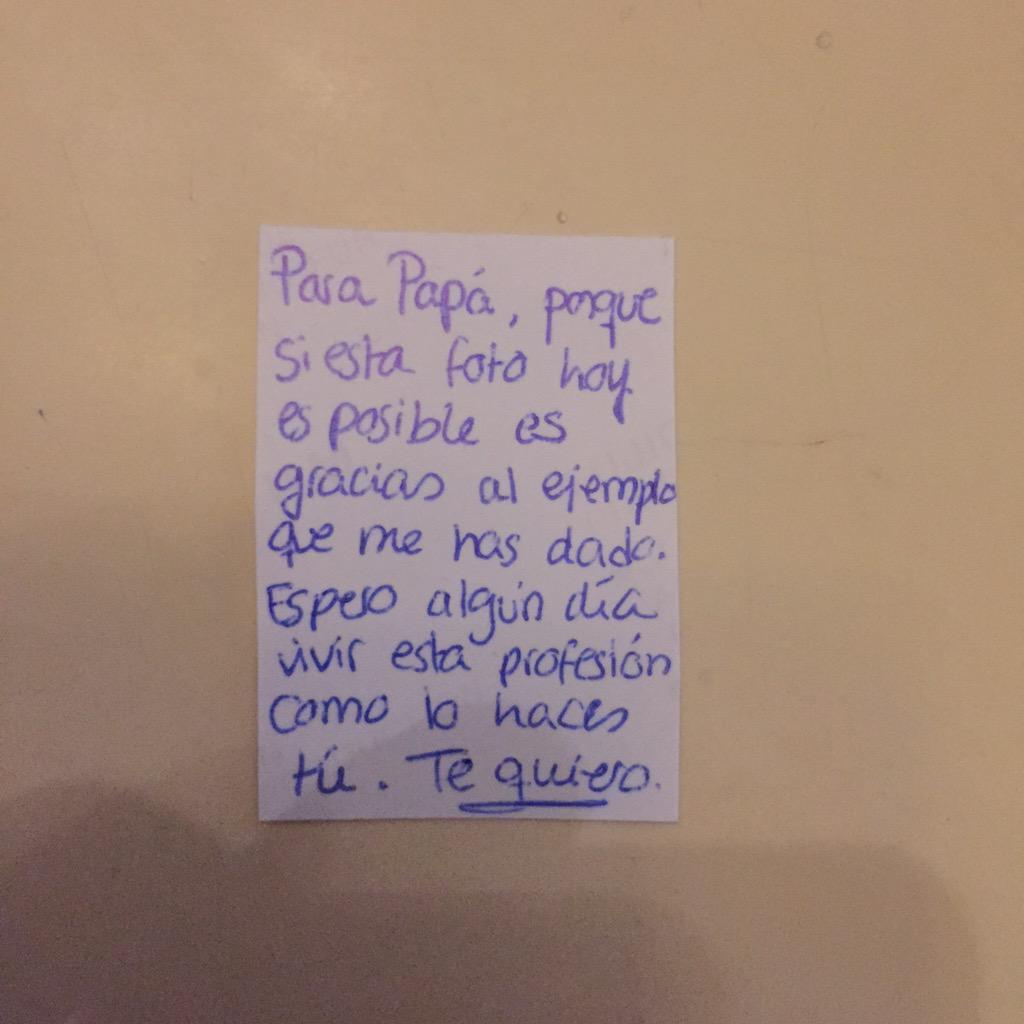 Para Papá, porque
si esta foto hoy
es posible es
gracias al ejemplo
que me has dado.
Espero algún día
vivir esta profesión
como lo haces
tú. Te quiero.